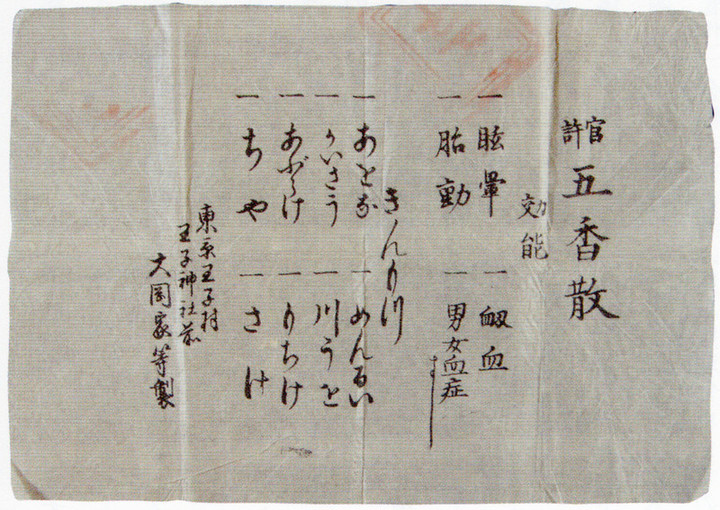 官許 五香散
効能
一 眩暈 一 衄血
一 胎動 一 男女血症
きんもつ
一 あをな 一 めんるい
一 かいさう 一 川うを
一 あぶらけ 一 もちけ
一 ちや 一 さけ
東京王子村
王子神社前
大岡家等製